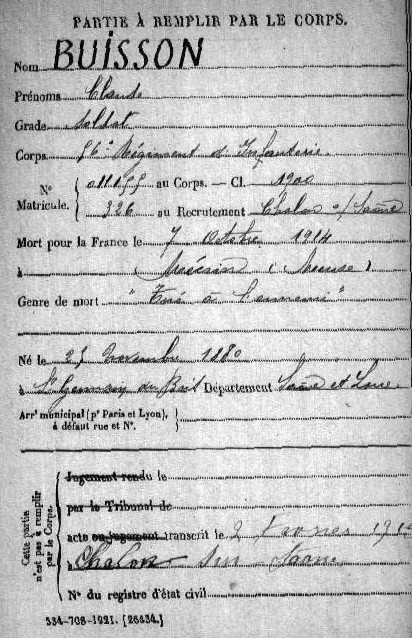 PARTIE À REMPLIR PAR LE CORPS.
Nom BUISSON
Prénoms Claude
Grade Soldat
Corps 56e Régiment d'Infanterie
N° Matricule. { au Corps. — Cl. 1900
326 au Recrutement Chalon s/ Saône
Mort pour la France le 7 Octobre 1914
à (Meuse)
Genre de mort "Tué à l'ennemi"
Né le 25 novembre 1880
à St Germain du Département Saône et Loire
Arrt municipal (pr Paris et Lyon),
à défaut rue et N°.
Cette partie n'est pas à remplir par le Corps.
Jugement rendu le
par le Tribunal de
acte ou jugement transcrit le 2 Février
à Chalon sur Saône
N° du registre d'état civil
534-708-1921. [26434.]